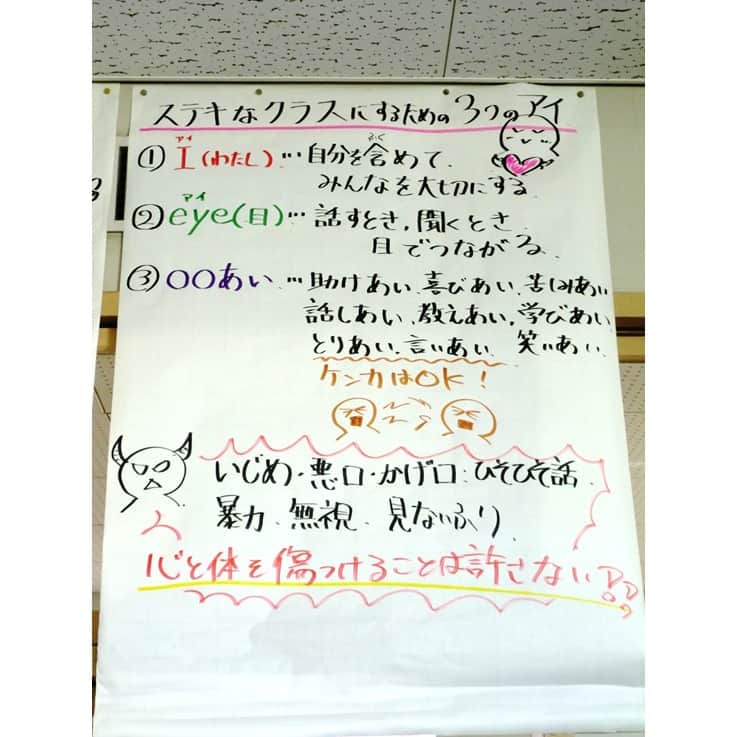 ステキなクラスにするための3つのアイ
アイ
① I(わたし)…自分を含めて、
ふく
みんなを大切にする
アイ
② eye(目)…話すとき,聞くとき
目でつながる、
③ 〇〇あい…助けあい、喜びあい、苦しみあい
話しあい、教えあい,学びあい
とりあい,言いあい、笑いあい、
ケンカはOK!
いじめ・悪口・かげ口・ひそひそ話、
暴力、無視、見ないふり、
心と体を傷つけることは許さない!!